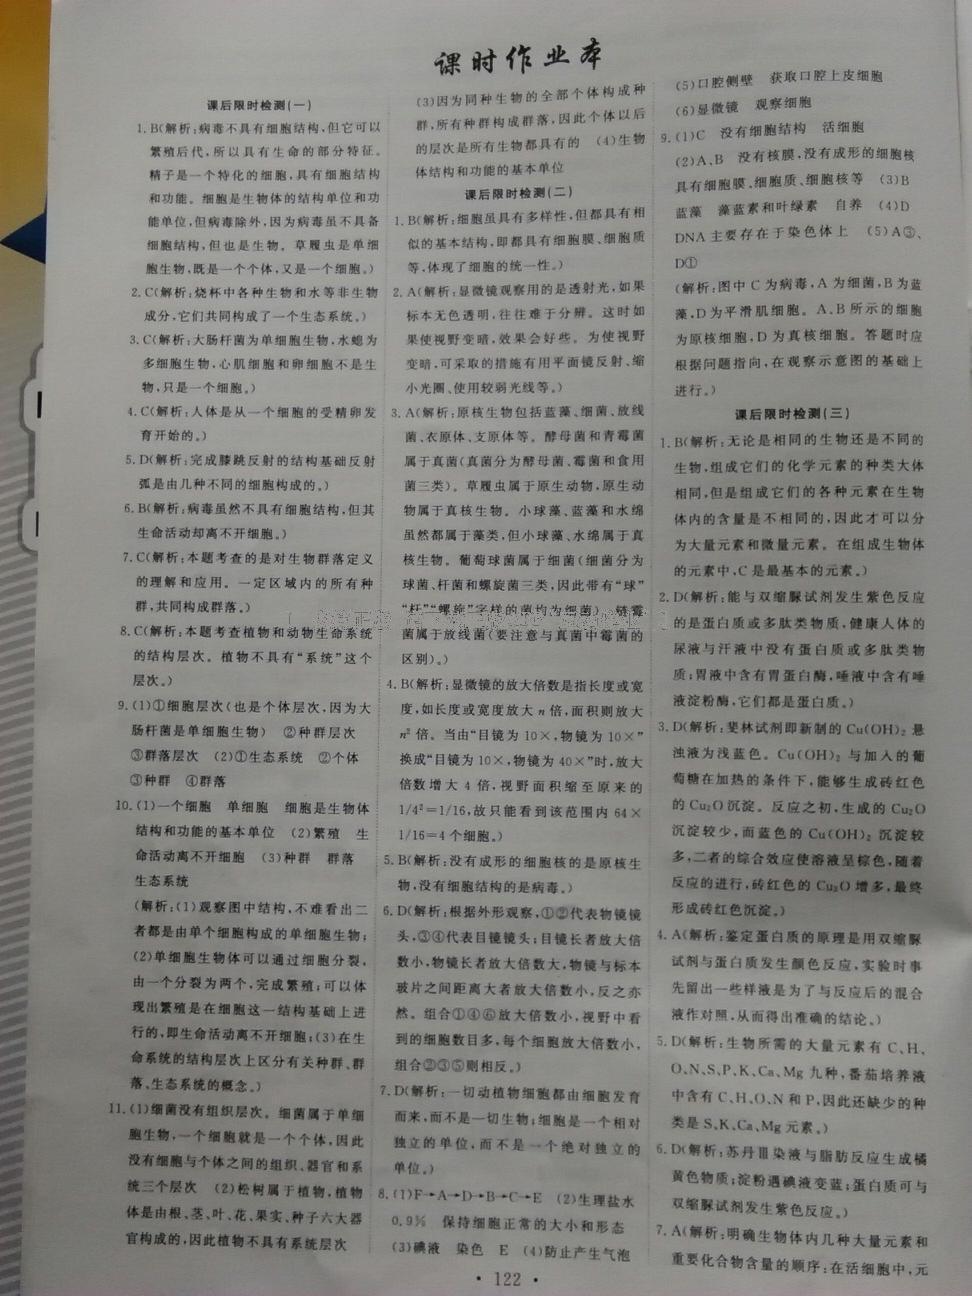 课时作业本
课后限时检测(一)
1.B(解析:病毒不具有细胞结构,但它可以
繁殖后代,所以具有生命的部分特征。
精子是一个特化的细胞,具有细胞结构
和功能。细胞是生物体的结构单位和功
能单位,但病毒除外,因为病毒虽不具备
细胞结构,但也是生物。草履虫是单细
胞生物,既是一个个体,又是一个细胞。)
2.C(解析:烧杯中各种生物和水等非生物
成分,它们共同构成了一个生态系统。)
3.C(解析:大肠杆菌为单细胞生物,水螅为
多细胞生物,心肌细胞和卵细胞不是生
物,只是一个细胞。)
4.C(解析:人体是从一个细胞的受精卵发
育开始的。)
5.D(解析:完成膝跳反射的结构基础反射
弧是由几种不同的细胞构成的。)
6.B(解析:病毒虽然不具有细胞结构,但其
生命活动却离不开细胞。)
7.C(解析:本题考查的是对生物群落定义
的理解和应用。一定区域内的所有种
群,共同构成群落。)
8.C(解析:本题考查植物和动物生命系统
的结构层次。植物不具有“系统”这个
层次。)
9.(1)①细胞层次(也是个体层次,因为大
肠杆菌是单细胞生物) ②种群层次
③群落层次 (2)①生态系统 ②个体
③种群 ④群落
10.(1)一个细胞 单细胞 细胞是生物体
结构和功能的基本单位 (2)繁殖 生
命活动离不开细胞 (3)种群 群落
生态系统
(解析:(1)观察图中结构,不难看出二
者都是由单个细胞构成的单细胞生物;
(2)单细胞生物体可以通过细胞分裂,
由一个分裂为两个,完成繁殖;可以体
现出繁殖是在细胞这一结构基础上进
行的,即生命活动离不开细胞;(3)在生
命系统的结构层次上区分有关种群、群
落、生态系统的概念。)
11.(1)细菌没有组织层次。细菌属于单细
胞生物,一个细胞就是一个个体,因此
没有细胞与个体之间的组织、器官和系
统三个层次 (2)松树属于植物,植物
体是由根、茎、叶、花、果实、种子六大器
官构成的,因此植物不具有系统层次
(3)因为同种生物的全部个体构成种
群,所有种群构成群落,因此个体以后
的层次是所有生物都具有的 (4)生物
体结构和功能的基本单位
课后限时检测(二)
1.B(解析:细胞虽具有多样性,但都具有相
似的基本结构,即都具有细胞膜、细胞质
等,体现了细胞的统一性。)
2.A(解析:显微镜观察用的是透射光,如果
标本无色透明,往往难于分辨。这时如
果使视野变暗,效果会好些。为使视野
变暗,可采取的措施有用平面镜反射、缩
小光圈、使用较弱光线等。)
3.A(解析:原核生物包括蓝藻、细菌、放线
菌、衣原体、支原体等。酵母菌和青霉菌
属于真菌(真菌分为酵母菌、霉菌和食用
菌三类)。草履虫属于原生动物,原生动
物属于真核生物。小球藻、蓝藻和水绵
虽然都属于藻类,但小球藻、水绵属于真
核生物。葡萄球菌属于细菌(细菌分为
球菌、杆菌和螺旋菌三类,因此带有“球”
“杆”“螺旋”字样的菌均为细菌)。链霉
菌属于放线菌(要注意与真菌中霉菌的
区别)。)
4.B(解析:显微镜的放大倍数是指长度或宽
度,如长度或宽度放大 n 倍,面积则放大
n² 倍。当由“目镜为 10×,物镜为 10×”
换成“目镜为 10×,物镜为 40×”时,放大
倍数增大 4 倍,视野面积缩至原来的
1/4²=1/16,故只能看到该范围内 64×
1/16=4 个细胞。)
5.B(解析:没有成形的细胞核的是原核生
物,没有细胞结构的是病毒。)
6.D(解析:根据外形观察,①②代表物镜镜
头,③④代表目镜镜头;目镜长者放大倍
数小,物镜长者放大倍数大,物镜与标本
玻片之间距离大者放大倍数小,反之亦
然。组合①④⑥放大倍数小,视野中看
到的细胞数目多,每个细胞放大倍数小,
组合②③⑤则相反。)
7.D(解析:一切动植物细胞都由细胞发育
而来,而不是一切生物;细胞是一个相对
独立的单位,而不是一个绝对独立的
单位。)
8.(1)F→A→D→B→C→E (2)生理盐水
0.9% 保持细胞正常的大小和形态
(3)碘液 染色 E (4)防止产生气泡
(5)口腔侧壁 获取口腔上皮细胞
(6)显微镜 观察细胞
9.(1)C 没有细胞结构 活细胞
(2)A、B 没有核膜,没有成形的细胞核
具有细胞膜、细胞质、细胞核等 (3)B
蓝藻 藻蓝素和叶绿素 自养 (4)D
DNA 主要存在于染色体上 (5)A③、
D①
(解析:图中 C 为病毒,A 为细菌,B 为蓝
藻,D 为平滑肌细胞。A、B 所示的细胞
为原核细胞,D 为真核细胞。答题时应
根据问题指向,在观察示意图的基础上
进行。)
课后限时检测(三)
1.B(解析:无论是相同的生物还是不同的
生物,组成它们的化学元素的种类大体
相同,但是组成它们的各种元素在生物
体内的含量是不相同的,因此才可以分
为大量元素和微量元素。在组成生物体
的元素中,C 是最基本的元素。)
2.D(解析:能与双缩脲试剂发生紫色反应
的是蛋白质或多肽类物质,健康人体的
尿液与汗液中没有蛋白质或多肽类物
质;胃液中含有胃蛋白酶,唾液中含有唾
液淀粉酶,它们都是蛋白质。)
3.D(解析:斐林试剂即新制的 Cu(OH)₂ 悬
浊液为浅蓝色。Cu(OH)₂ 与加入的葡
萄糖在加热的条件下,能够生成砖红色
的 Cu₂O 沉淀。反应之初,生成的 Cu₂O
沉淀较少,而蓝色的 Cu(OH)₂ 沉淀较
多,二者的综合效应使溶液呈棕色,随着
反应的进行,砖红色的 Cu₂O 增多,最终
形成砖红色沉淀。)
4.A(解析:鉴定蛋白质的原理是用双缩脲
试剂与蛋白质发生颜色反应,实验时事
先留出一些样液是为了与反应后的混合
液作对照,从而得出准确的结论。)
5.D(解析:生物所需的大量元素有 C、H、
O、N、S、P、K、Ca、Mg 九种,番茄培养液
中含有 C、H、O、N 和 P,因此还缺少的种
类是 S、K、Ca、Mg 元素。)
6.D(解析:苏丹Ⅲ染液与脂肪反应生成橘
黄色物质;淀粉遇碘液变蓝;蛋白质可与
双缩脲试剂发生紫色反应。)
7.A(解析:明确生物体内几种大量元素和
重要化合物含量的顺序:在活细胞中,元
· 122 ·